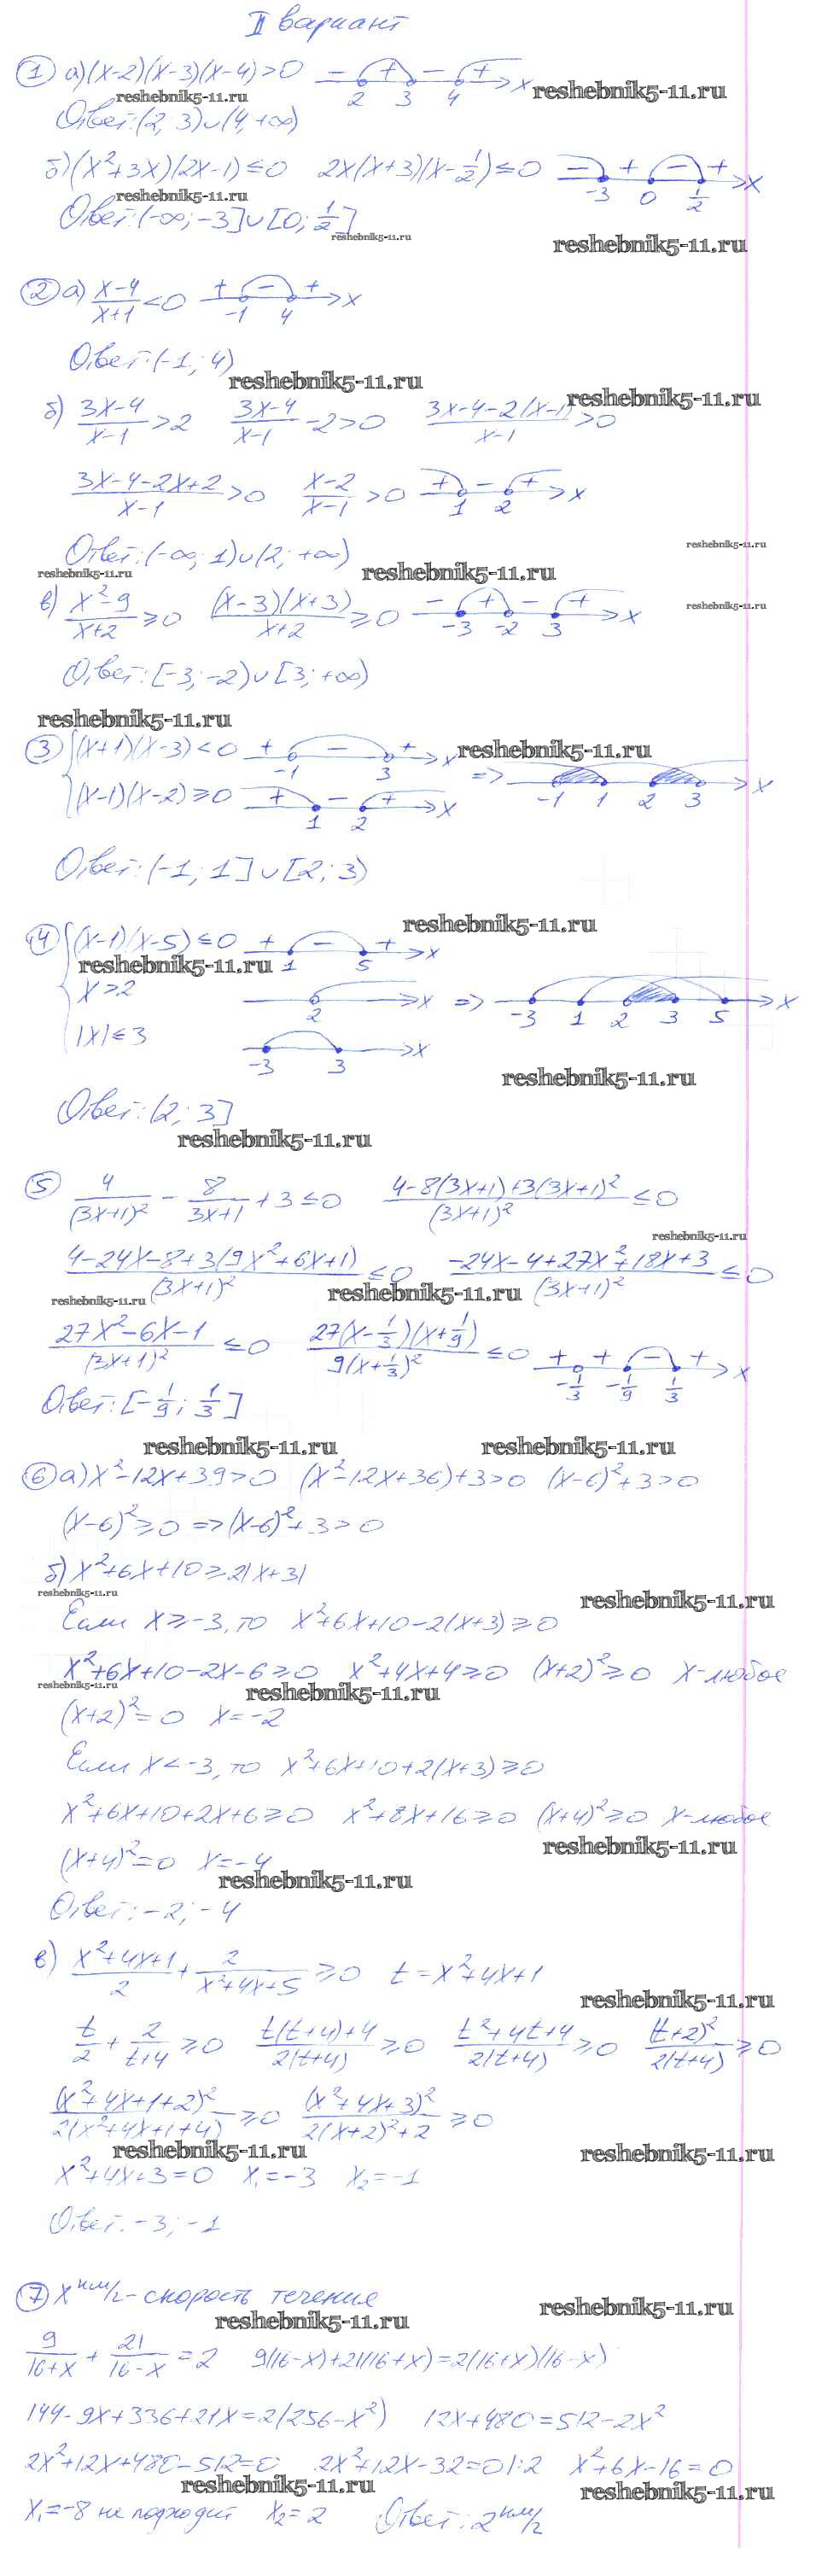 II вариант
① а) (x-2)(x-3)(x-4)>0 − + − + x
2 3 4
reshebnik5-11.ru reshebnik5-11.ru
Ответ: (2; 3)∪(4; +∞)
б) (x²+3x)(2x-1)≤0 2x(x+3)(x-1/2)≤0 − + − + x
-3 0 1/2
reshebnik5-11.ru
Ответ: (-∞; -3]∪[0; 1/2]
reshebnik5-11.ru
reshebnik5-11.ru
② а) (x-4)/(x+1)<0 + − + x
-1 4
Ответ: (-1; 4)
reshebnik5-11.ru
reshebnik5-11.ru
б) (3x-4)/(x-1)>2 (3x-4)/(x-1)-2>0 (3x-4-2(x-1))/(x-1)>0
(3x-4-2x+2)/(x-1)>0 (x-2)/(x-1)>0 + − + x
1 2
Ответ: (-∞; 1)∪(2; +∞)
reshebnik5-11.ru
reshebnik5-11.ru reshebnik5-11.ru
в) (x²-9)/(x+2)≥0 ((x-3)(x+3))/(x+2)≥0 − + − + x
-3 -2 3
reshebnik5-11.ru
Ответ: [-3; -2)∪[3; +∞)
reshebnik5-11.ru
③ {(x+1)(x-3)<0 + − + x
-1 3
reshebnik5-11.ru
=> -1 1 2 3 x
(x-1)(x-2)≥0 + − + x
1 2
Ответ: (-1; 1]∪[2; 3)
reshebnik5-11.ru
④ {(x-1)(x-5)≤0 + − + x
1 5
reshebnik5-11.ru
x>2 2 x => -3 1 2 3 5 x
|x|≤3 -3 3 x
reshebnik5-11.ru
Ответ: (2; 3]
reshebnik5-11.ru
⑤ 4/(3x+1)² - 8/(3x+1) + 3≤0 (4-8(3x+1)+3(3x+1)²)/(3x+1)² ≤0
reshebnik5-11.ru
(4-24x-8+3(9x²+6x+1))/(3x+1)² ≤0 (-24x-4+27x²+18x+3)/(3x+1)² ≤0
reshebnik5-11.ru reshebnik5-11.ru
(27x²-6x-1)/(3x+1)² ≤0 (27(x-1/3)(x+1/9))/(9(x+1/3)²) ≤0 + + − + x
-1/3 -1/9 1/3
Ответ: [-1/9; 1/3]
reshebnik5-11.ru reshebnik5-11.ru
⑥ а) x²-12x+39>0 (x²-12x+36)+3>0 (x-6)²+3>0
(x-6)²≥0 => (x-6)²+3>0
б) x²+6x+10≥2|x+3|
reshebnik5-11.ru reshebnik5-11.ru
Если x≥-3, то x²+6x+10-2(x+3)≥0
x²+6x+10-2x-6≥0 x²+4x+4≥0 (x+2)²≥0 x-любое
reshebnik5-11.ru reshebnik5-11.ru
(x+2)²=0 x=-2
Если x<-3, то x²+6x+10+2(x+3)≥0
x²+6x+10+2x+6≥0 x²+8x+16≥0 (x+4)²≥0 x-любое
reshebnik5-11.ru
(x+4)²=0 x=-4
reshebnik5-11.ru
Ответ: -2; -4
в) (x²+4x+1)/2 + 2/(x²+4x+5) ≥0 t=x²+4x+1
reshebnik5-11.ru
t/2 + 2/(t+4) ≥0 (t(t+4)+4)/(2(t+4)) ≥0 (t²+4t+4)/(2(t+4)) ≥0 (t+2)²/(2(t+4)) ≥0
(x²+4x+1+2)²/(2(x²+4x+1+4)) ≥0 (x²+4x+3)²/(2(x+2)²+2) ≥0
reshebnik5-11.ru reshebnik5-11.ru
x²+4x+3=0 x₁=-3 x₂=-1
Ответ: -3; -1
⑦ x км/ч - скорость течения
reshebnik5-11.ru reshebnik5-11.ru
9/(16+x) + 21/(16-x) = 2 9(16-x)+21(16+x)=2(16+x)(16-x)
144-9x+336+21x=2(256-x²) 12x+480=512-2x²
2x²+12x+480-512=0 2x²+12x-32=0|:2 x²+6x-16=0
reshebnik5-11.ru reshebnik5-11.ru
x₁=-8 не подходит x₂=2 Ответ: 2 км/ч